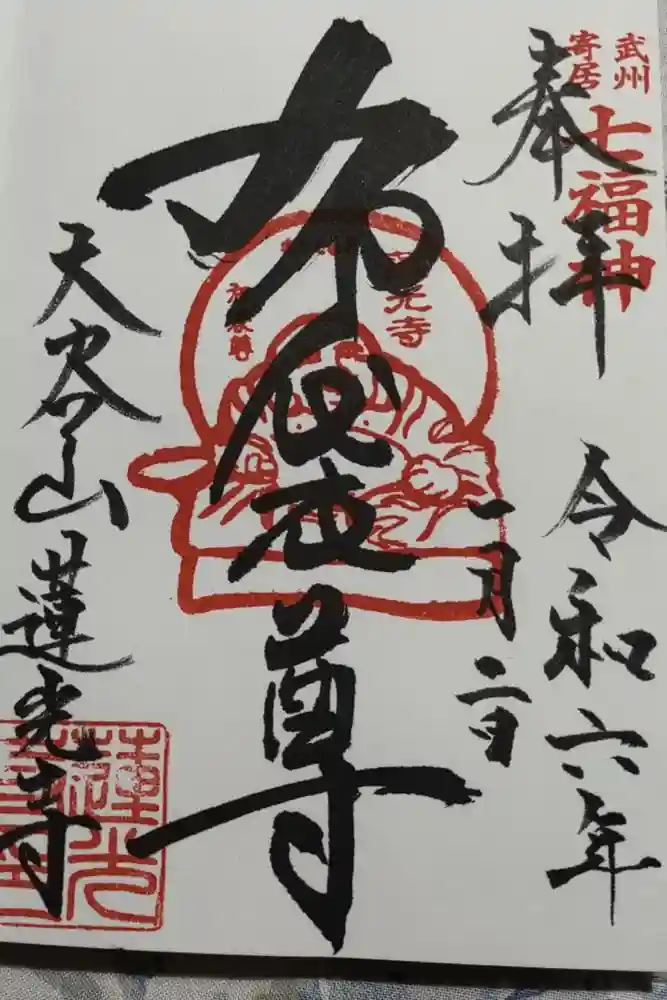 武州
寄居
七福神
奉拝
令和六年
一月二日
布袋尊
蓮光寺
布袋尊
天谷山蓮光寺